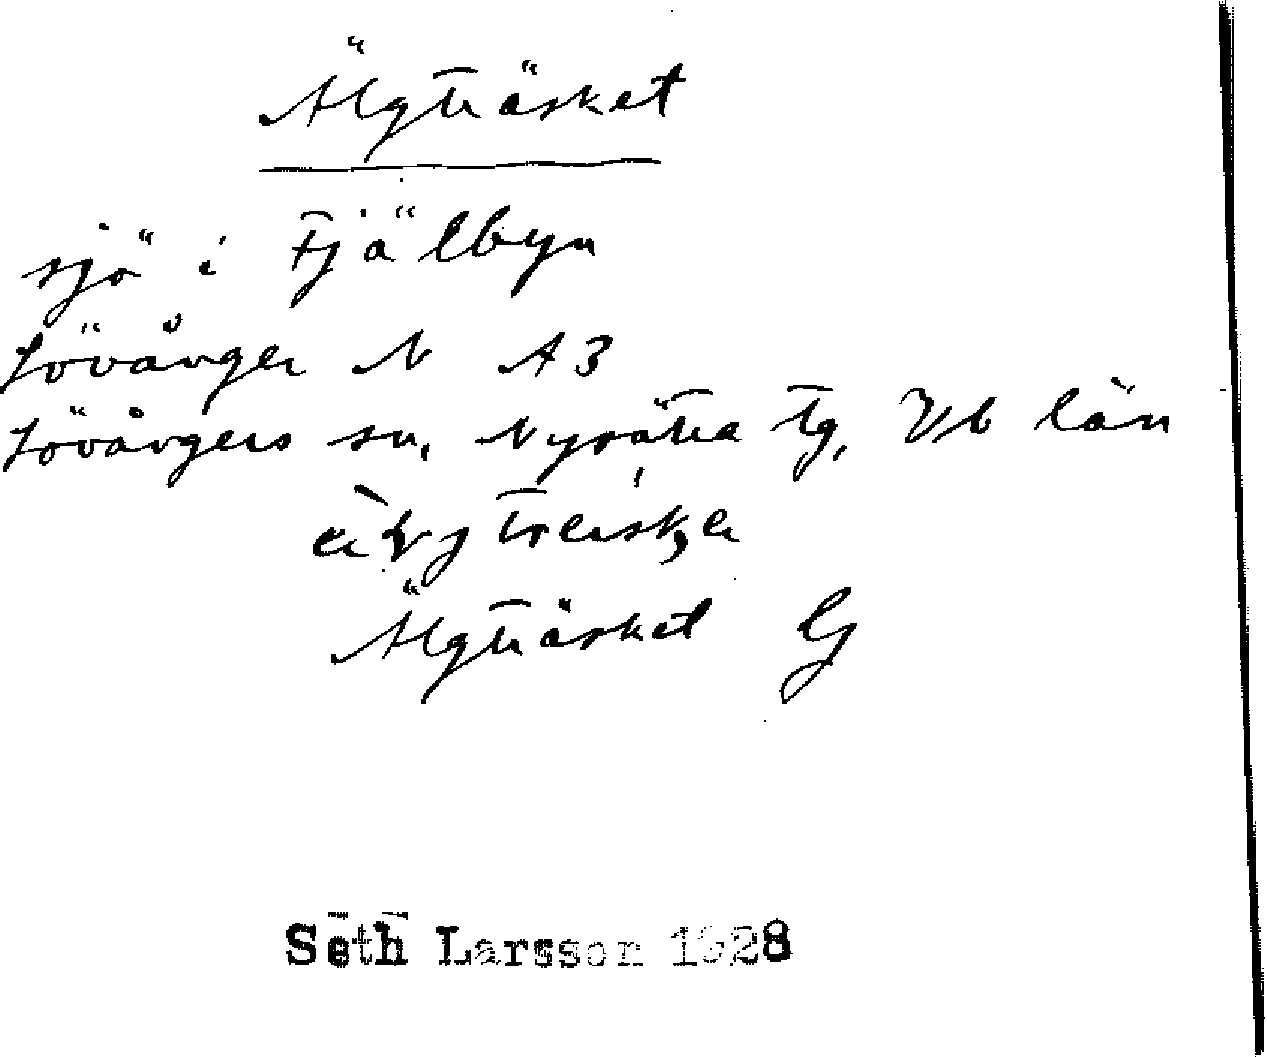 Älgträsket
sjö i Fjälbyn
Lövånger N A3
Lövångers sn, Nysätra tg, Vb län
Älgträsket G
Seth Larsson 1928